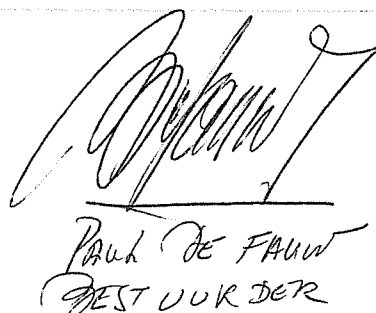 PAUL DE FAUW
BESTUURDER